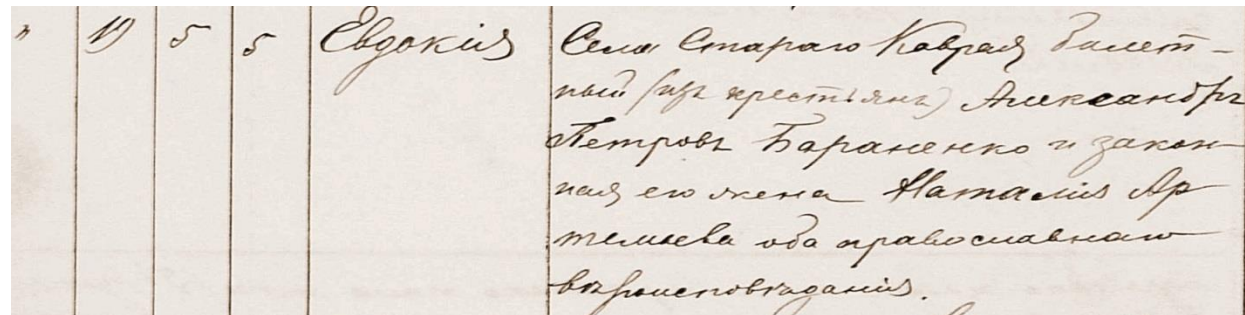 " 19 5 5 Евдокія Села Стараго Коврая билет-
ный (изъ крестьянъ) Александръ
Петровъ Бараненко и закон-
ная его жена Наталія Ар
темьева оба православнаго
вѣроисповѣданія.